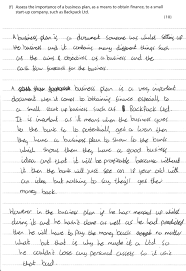 (f) Assess the importance of a business plan, as a means to obtain finance, to a small
start-up company, such as Backpack Ltd.
(10)
A business plan is a document someone uses whilst setting up
the business and it contains many different things such
as the aims & objectives as a business and the
cash flow forecast for the business.
A business plan is a very important
document when it comes to obtaining finance especially to
a small start up business such as Backpack Ltd.
It is important as it means when the business owner
let the bank to be potentially get a loan then
they have a business plan to show to the bank
which shows them they have a good business
idea and that it will be profitable because without
it then the bank will just see
an idea but nothing to say they'll get their
money back.
However in the business plan if he has messed up whilst
doing it and he hasn't done as well as he had predicted
then he will have to pay the money back no matter
what but that is why he made it a Ltd so
he couldn't lose any personal assets so it isn't
that bad.